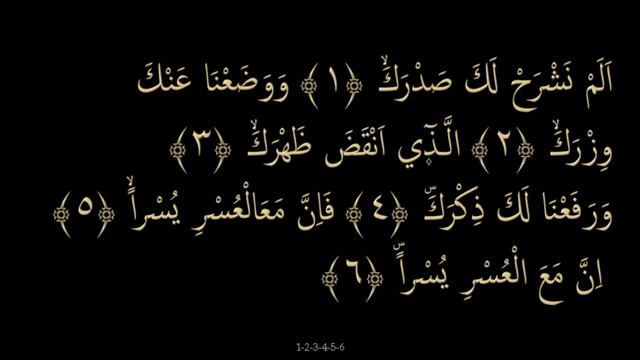 اَلَمْ نَشْرَحْ لَكَ صَدْرَكَۙ ﴿١﴾ وَوَضَعْنَا عَنْكَ
وِزْرَكَۙ ﴿٢﴾ الَّذ۪ٓي اَنْقَضَ ظَهْرَكَۙ ﴿٣﴾
وَرَفَعْنَا لَكَ ذِكْرَكَۜ ﴿٤﴾ فَاِنَّ مَعَالْعُسْرِ يُسْراًۙ ﴿٥﴾
اِنَّ مَعَ الْعُسْرِ يُسْراًۜ ﴿٦﴾
1-2-3-4-5-6